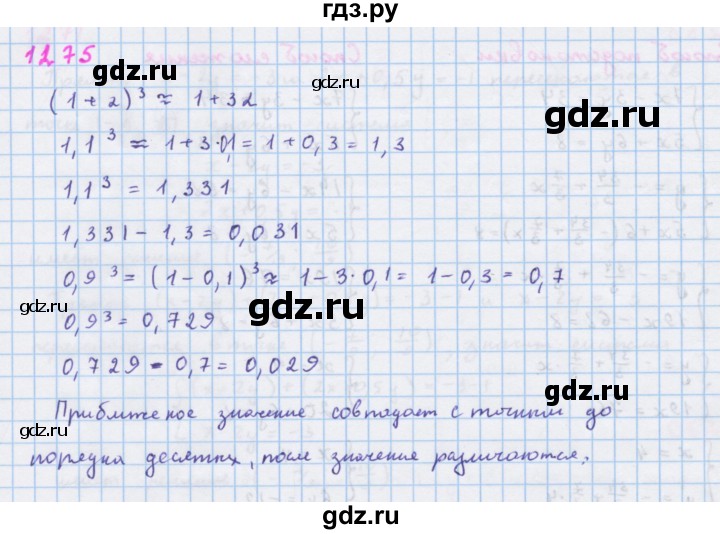 гдз.ру
12.75
(1+2)³ ≈ 1+32
gdz.ru
1,1³ ≈ 1+3·0,1 = 1+0,3 = 1,3
1,1³ = 1,331
1,331 - 1,3 = 0,031
0,9³ = (1-0,1)³ ≈ 1-3·0,1 = 1-0,3 = 0,7
gdz.ru
gdz.ru
gdz.ru
0,9³ = 0,729
0,729 - 0,7 = 0,029
gdz.ru
Приближеное значение совпадает с точным до
gdz.ru
порядка десятых, после значение различаются.
gdz.ru